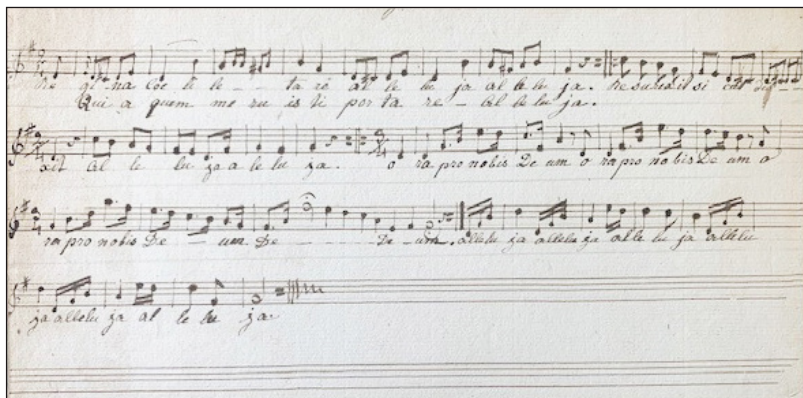 Re gi na Coe li le - - ta re al le lu ja al le lu ja. Resurexit si cut di -
Qui a quem me ru is ti por ta re - al le lu ja.
xit al le lu ja a le lu ja. o ra pro nobis De um o ra pro no bis De um o
ra pro nobis De - um De - - - - De - um. allelu ja allelu ja al le lu ja allelu
ja allelu ja al le lu ja